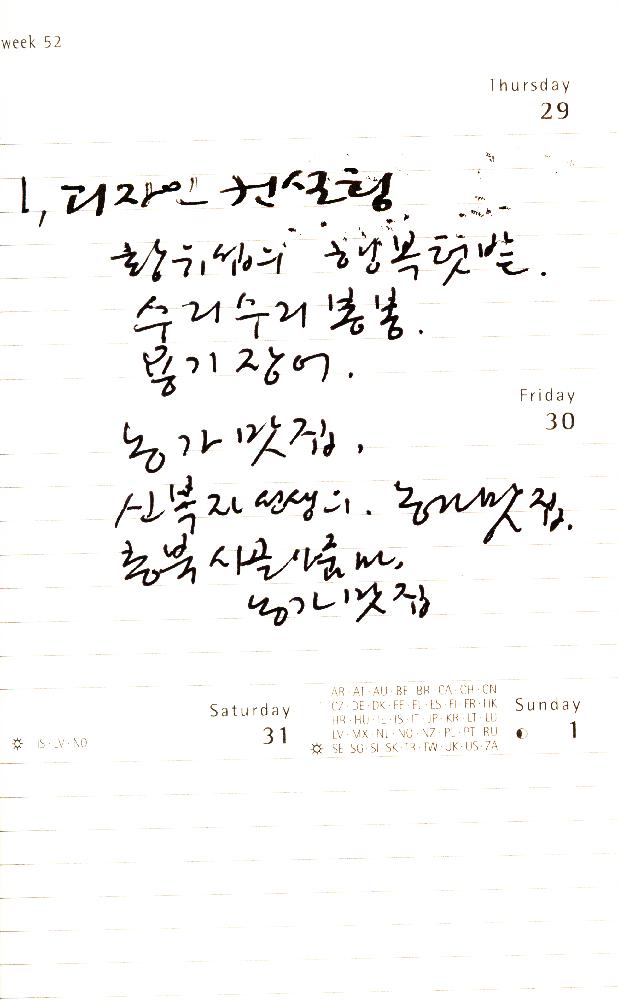 week 52
Thursday
29
1, 디자인 컨설팅
황귀씨의 행복텃밭.
수리수리봉봉.
풍기장어.
농가맛집.
Friday
30
신복자선생의. 농가맛집.
충북 시골아줌마.
농가맛집
AR·AT·AU·BE·BR·CA·CH·CN
Saturday
CZ·DE·DK·EE·FL·ES·FI·FR·HK
Sunday
HR·HU·IL·IS·IT·JP·KR·LT·LU
31
LV·MX·NL·NO·NZ·PL·PT·RU
1
IS·LV·NO
SE·SG·SI·SK·TR·TW·UK·US·ZA